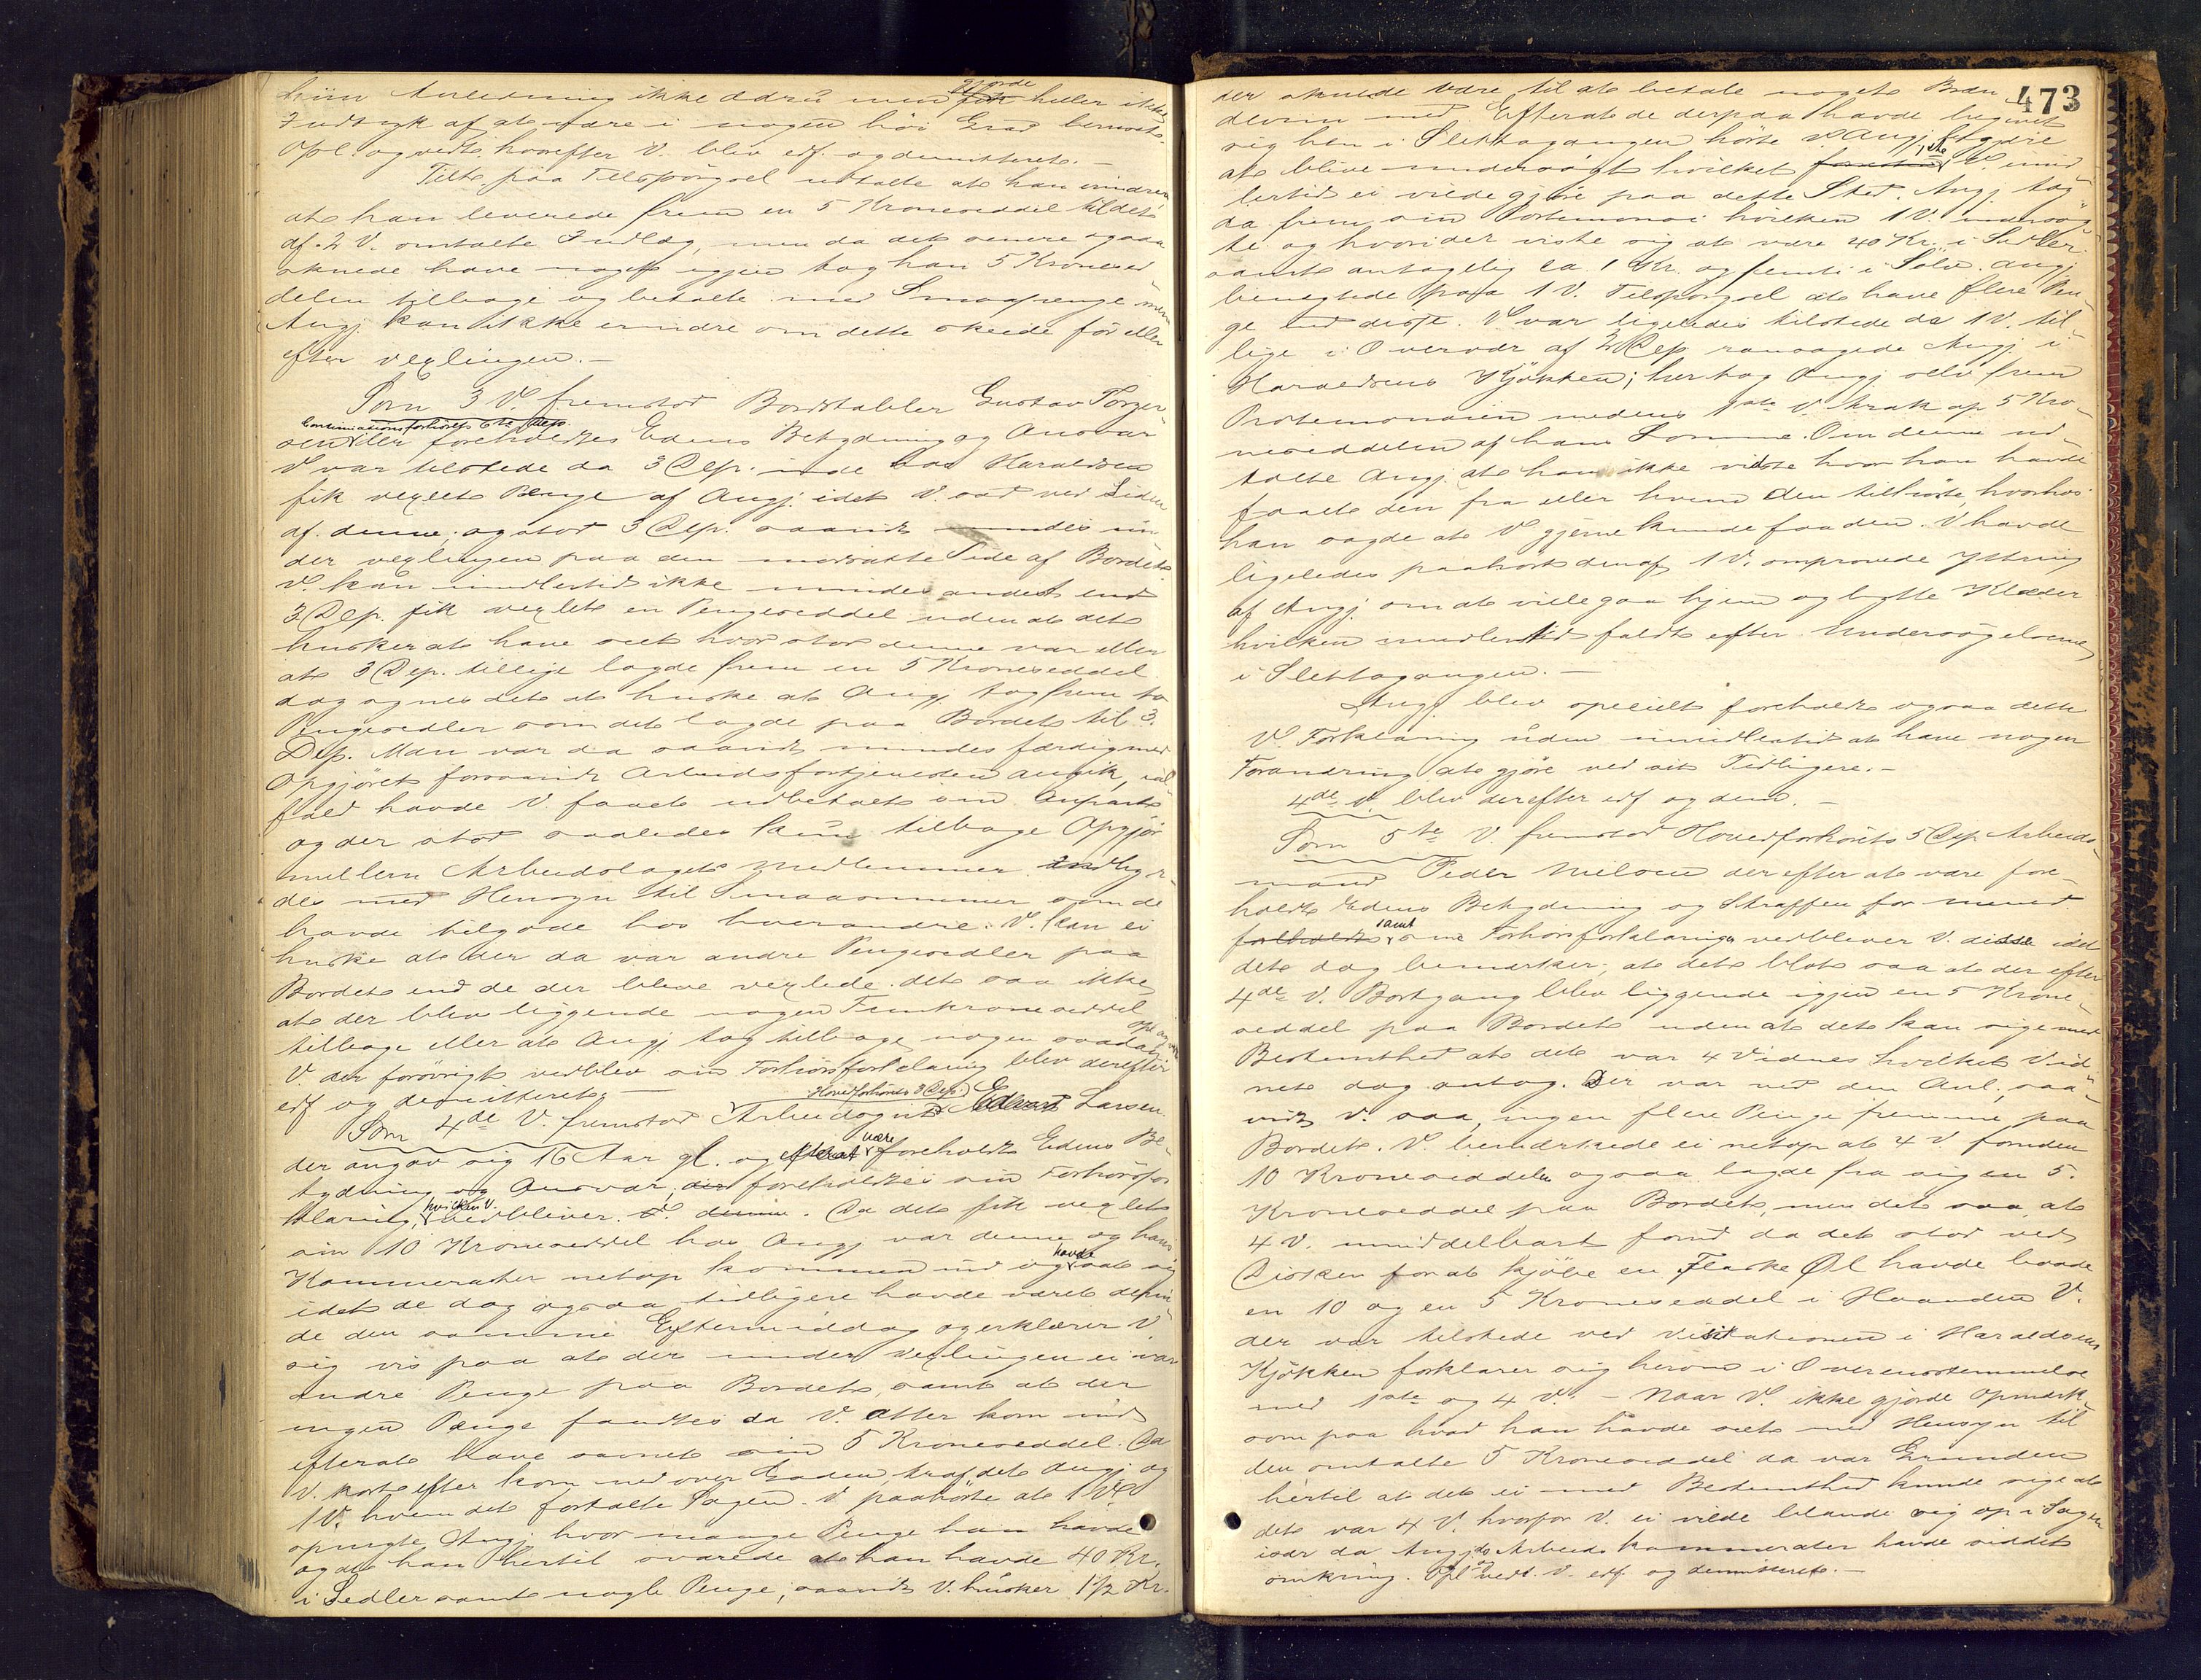 hiin Anledning ikke ædru men ~~fik~~ gjorde heller ikke
Indtryk af at være i nogen höi Grad beruset.
Opl. og vedt. hvorefter V. blev edf. og demitteret. –
Tilt. paa Tilspörgsel udtalte at han erindrer
at han leverede frem en 5 Kroneseddel til det
af 2 V. omtalte Indlæg, men da det senere ogsaa
skulde have noget igjen tog han 5 Kronesed
delen tilbage og betalte med Smaapenge men
Angj. kan ikke erindre om dette skede för eller
efter vexlingen. –
Som 3 V. fremstod Bordstabler Gustav Torger-
sen Continuationsforhörets 6te Dep. der foreholdtes Edens Betydning og Ansvar
V var tilstede da 3 Dep. inde hos Haraldsen
fik vexlet Penge af Angj. idet V. sad ved Siden
af denne, og stod 3 Dep. saavidt mindes un-
der vexlingen paa den modsatte Side af Bordet.
V. kan imidlertid ikke mindes andet end
3 Dep. fik vexlet en Pengeseddel uden at det
husker at have seet hvor stor denne var eller
at 3 Dep. tillige lagde frem en 5 Kroneseddel
dog synes det at huske at Angj. tog frem to
Pengesedler som det lagde paa Bordet til 3.
Dep. Man var da saavidt mindes færdig med
Opgjöret forsaavidt Arbeidsfortjenesten angik, ial-
fald havde V. faaet udbetalt sin Anpart
og der stod saaledes kun tilbage Opgjör
mellem Arbeidslagets Medlemmer indbyr-
des med Hensyn til Smaasummer som de
havde tilgode hos hverandre. V. kan ei
huske at der da var andre Pengesedler paa
Bordet end de der bleve vexlede. det saa ikke
at der blev liggende nogen Femkroneseddel
tilbage eller at Angj. tog tilbage nogen saadan
V. der forövrigt vedblev sin Forhörsforklaring blev derefter
edf og demitteret. –
Som 4de V. fremstod Hovedforhörets 3 Dep. Arbeidsgut Edvard Larsen
der angav sig 16 Aar gl. og ~~efterat~~ være foreholdt Edens Be-
tydning og Ansvar, foreholdtes sin Forhörsfor
klaring, hvilken V. vedbliver. ~~V. denne~~. Da det fik vexlet
sin 10 Kroneseddel hos Angj var denne og hans
Kammerater netop kommen ind og havde sat sig
idet de dog ogsaa tidligere havde været derin
de den samme Eftermiddag og erklærer V.
sig vis paa at der under vexlingen ei var
andre Penge paa Bordet, samt at der
ingen Penge fandtes da V. atter kom ind
efterat have savnet sin 5 Kroneseddel. Da
V. kort efter kom ned over Gaden, traf det Angj og
1 V. hvem det fortalte Sagen. V paahörte at 1 V.
spurgte Angj. hvor mange Penge han havde
og at han hertil svarede at han havde 40 Kr.
i Sedler samt nogle Penge, saavidt V. husker 1 1/2 Kr.
473
der skulde være til at betale noget Bræn
devin med. Efterat de derpaa havde begivet
sig hen i Slettagangen hörte V. Angj. begjære
at blive undersögt hvilket 1ste V. imid
lertid ei vilde gjöre paa dette Sted. Angj. tog
da frem sin Portemonæi hvilken 1 V. undersög
te og hvori der viste sig at være 40 Kr. i Sedler
samt antagelig ca. 1 Kr. og femti i Sölv. Angj
benegtede paa 1 V. Tilspörgsel at have flere Pen-
ge end disse. V var ligeledes tilstede da 1 V. til-
lige i Overvær af 2 Dep ransagede Angj. i
Haraldsens Kjökken; her tog Angj selv frem
Portemonæien medens 1ste V. trak op 5 Kro-
neseddelen af hans Lomme. Om denne ud-
talte Angj. at han ikke vidste hvor han havde
faaet den fra eller hvem den tilhörte, hvorhos
han sagde at V gjerne kunde faa den. V havde
ligeledes paahört den af 1 V. omprovede Yttring
af Angj om at ville gaa hjem og bytte Klæder
hvilken imidlertid faldt efter Undersögelserne
i Slettagangen. –
Angj blev specielt foreholdt ogsaa dette
V. Forklaring uden imidlertid at have nogen
Forandring at gjöre ved sit Tidligere. –
4de V. blev derefter edf og dem. –
Som 5te V. fremstod Hovedforhörets 5 Dep. Arbeids-
mand Peder Nielsen der efter at være fore-
holdt Edens Betydning og Straffen for Mened
~~foreholdt~~ samt sine Forhörsforklaringer vedbliver V. disse idet
det dog bemærker, at det blot saa at der efter
4de V. Bortgang blev liggende igjen en 5 Krone-
seddel paa Bordet uden at det kan sige med
Bestemthed at det var 4 Vidnes hvilket Vid-
net dog antog. Der var ved den Anl., saa-
vidt V. saa, ingen flere Penge fremme paa
Bordet. V. bemærkede ei netop at 4 V foruden
10 Kroneseddelen ogsaa lagde fra sig en 5.
Kroneseddel paa Bordet, men det saa, at
4 V. umiddelbart forud da det stod ved
Disken for at kjöbe en Flaske Øl havde baade
en 10 og en 5 Kroneseddel i Haanden V.
der var tilstede ved Visitationen i Haraldsens
Kjökken forklarer sig herom i Overensstemmelse
med 1ste og 4 V. – Naar V. ikke gjorde Opmærk-
som paa hvad han havde seet med Hensyn til
den omtalte 5 Kroneseddel da var Grunden
hertil at det ei med Bestemthed kunde sige at
det var 4 V. hvorfor V. ei vilde blande sig op i Sagen
især da Angjs Arbeids kammerater havde siddet
omkring. Opl og vedt. V. edf og demitteret. –